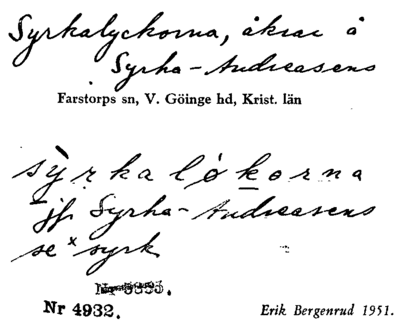 Syrkalyckorna, åkrar å
Syrka-Andreasens
Farstorps sn, V. Göinge hd, Krist. län
sỳrkalókorna
jf Syrka-Andreasens
se ˣsyrk
Nr 4932.
Erik Bergenrud 1951.